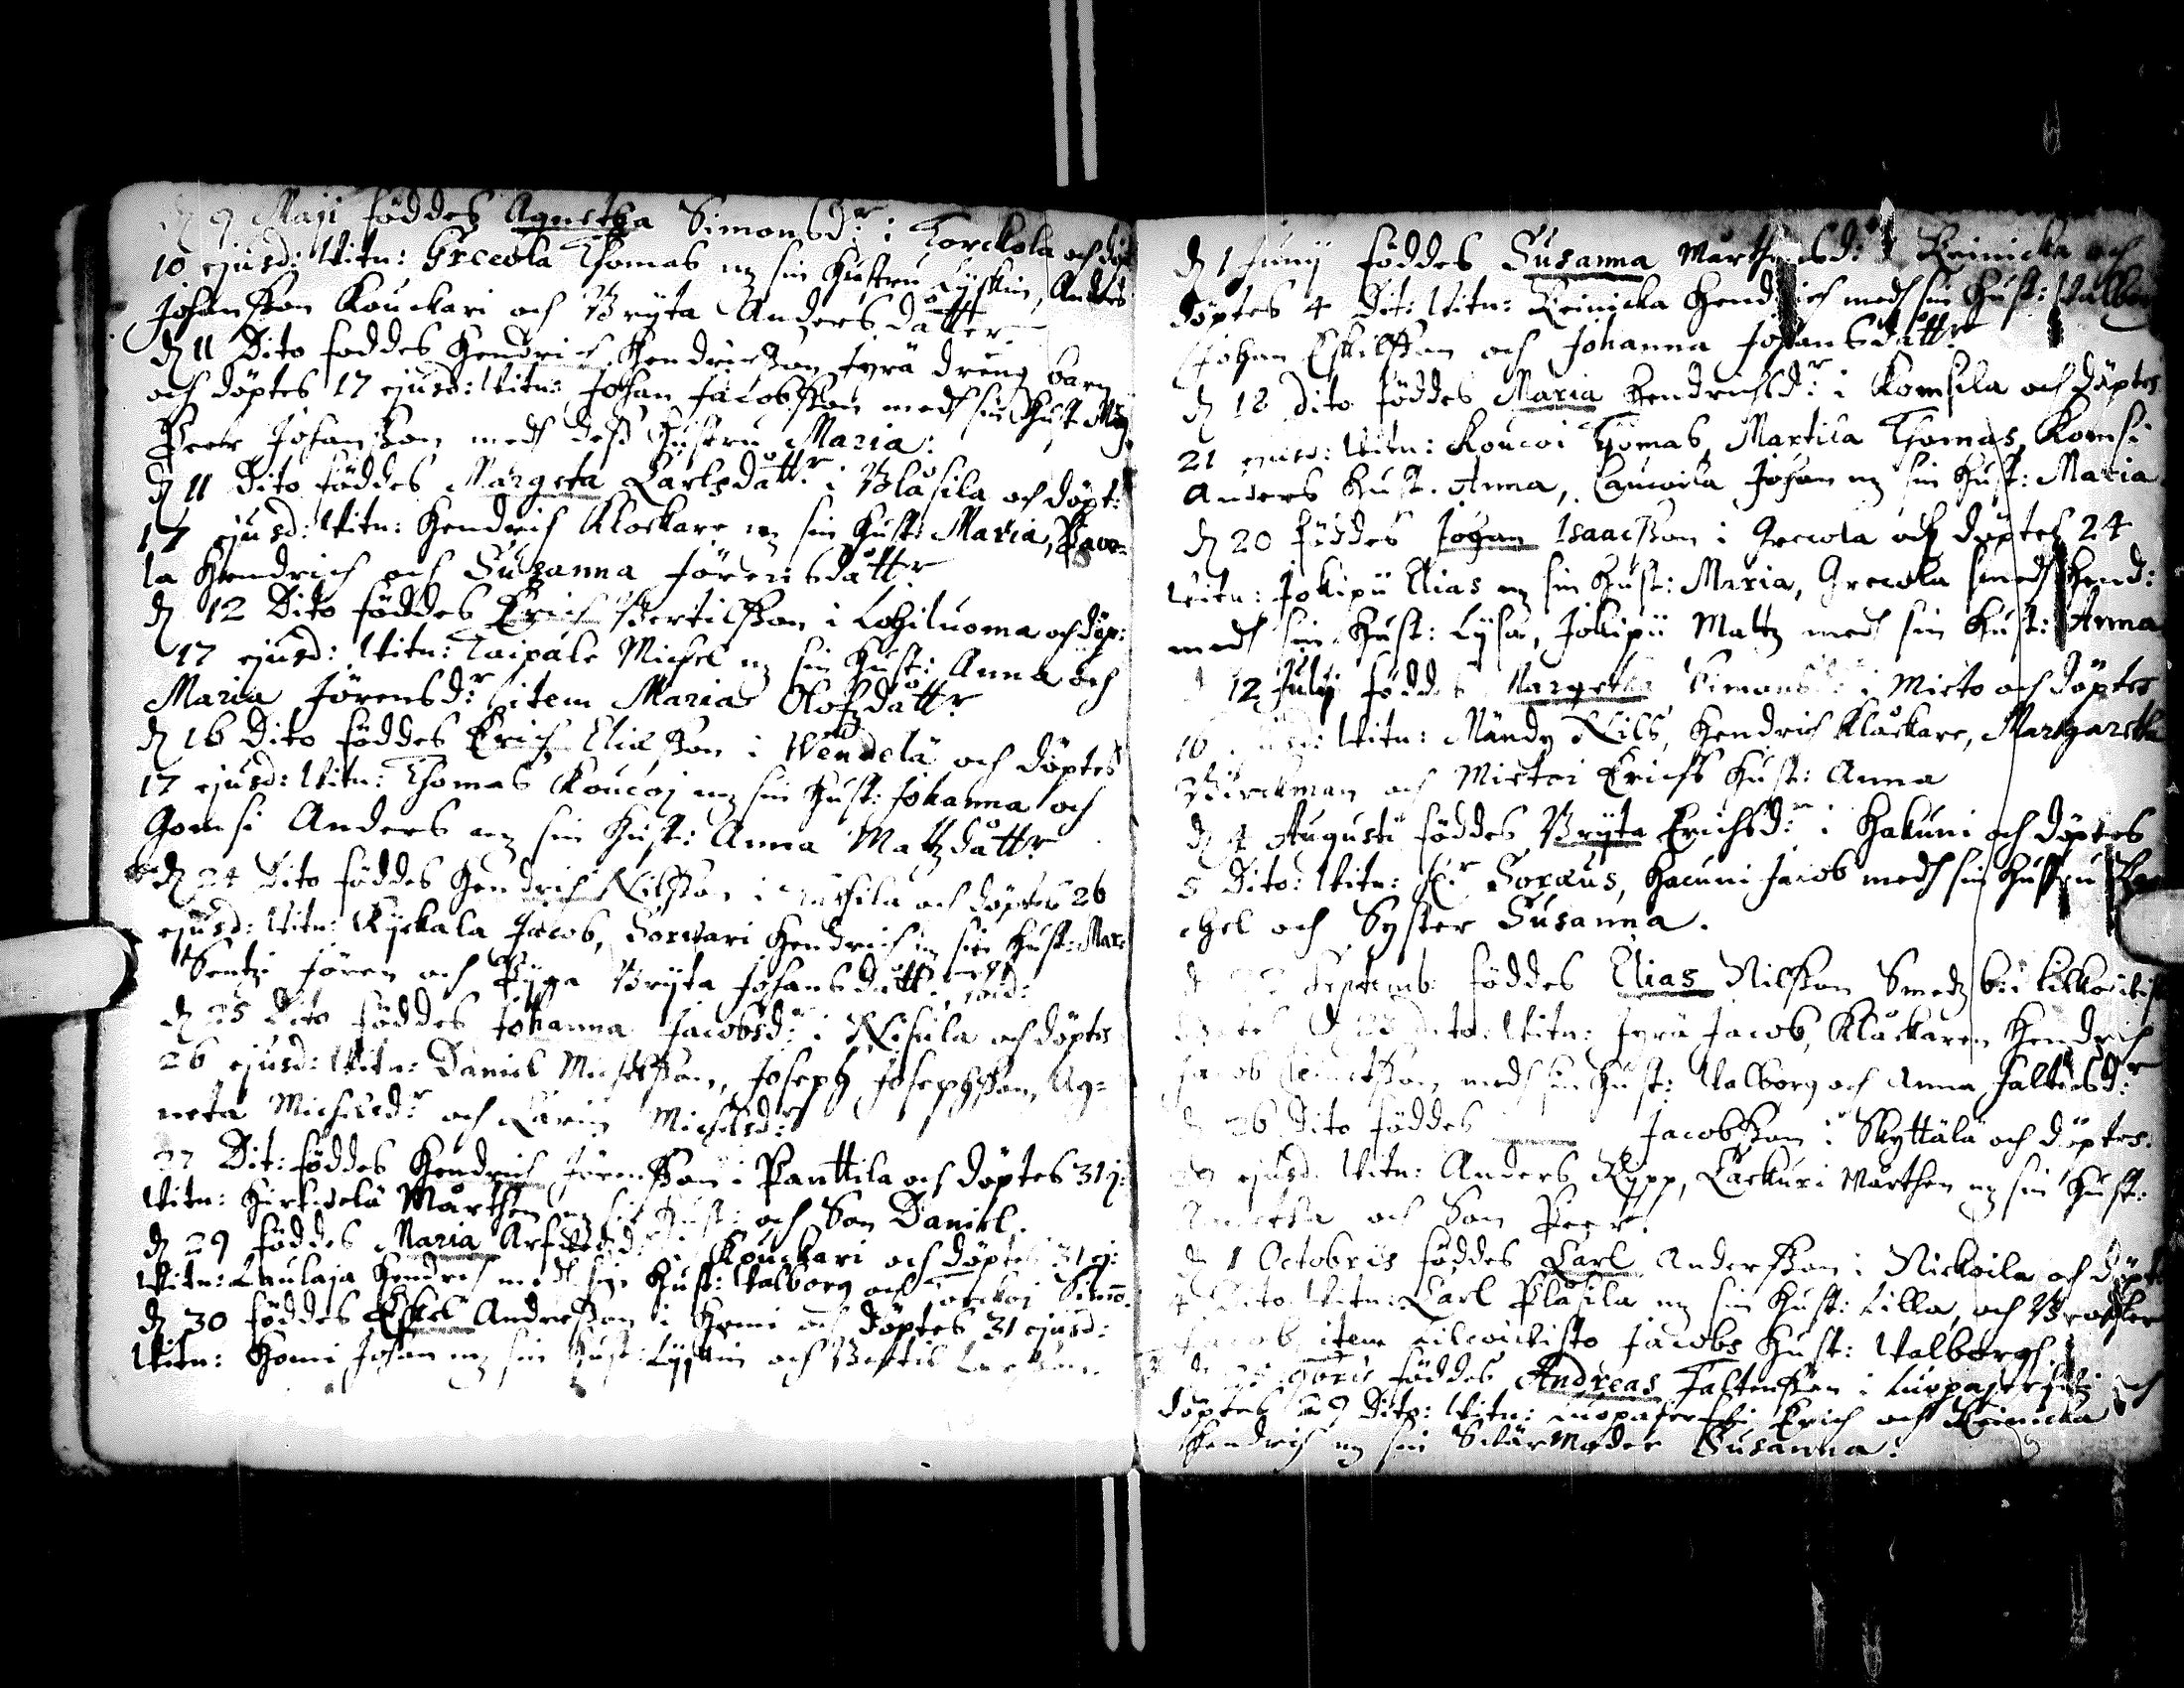 9 Maji föddes Agnetha Simonsdr i Torckola och döpt
10 ejusd: Witn: Greeola Thomas mz sin hustru Lijskin, Anders
Johansson Kouckari och Brijta Andersdåtter
d 11 Dito föddes Hendrich Hendricksson Jyrä dreng barn
och döptes 17 ejusd: Witn: Johan Jacobsson medh sin Hust
Peer Johansson medh dess Hustru Maria:
d 11 Dito föddes Margeta Carlsdåttr i Blåsila och döpt:
17 ejusd: Witn: Hendrich Klockare mz sin Hust: Maria, Pavo-
la Hendrich och Susanna Jörensdåttr
d 12 Dito föddes Erich Bertilsson i Lohiluoma och döp:
17 ejusd: Witn: Taipale Michel mz sin Hust: Anna och
Maria Jörensdr item Maria Olofzdåttr
d 16 Dito föddes Erich Eliæsson i Wendelä och döptes
17 ejusd: Witn: Thomas Koucoj mz sin Hust: Johanna och
Gomsi Anders mz sin Hust: Anna Matzdåttr
d 24 Dito föddes Hendrich Nilsson i och döptes 26
ejusd: Witn: Kyckala Jacob, Sorvari Hendrich mz sin Hust: Mar
Sentzi Jören och Pijga Brijta Johansdåttr
d 25 Dito föddes Johanna Jacobsdr i Nisula och döptes
26 ejusd: Witn: Daniel Michelsson, Joseph Josephsson, Ag-
neta Michelsdr och Carin Michelsdr
27 Dit: föddes Hendrich Jörensson i Panttila och döptes 31 j:
Witn: Hirkivelä Mårthen mz sin Hust: och Son Daniel.
d 29 föddes Maria i Kouckari och döptes 31 ej:
Witn: Laulaja Hendrich medh sin Hust: Walborg och Simo.
d 30 föddes Eskel Andersson i Homi och döptes 31 ejusd:
Witn: Homi Johan mz sin Hust: Lijskin och Bertil
d 1 Junij föddes Susanna Mårthensd: i Reinicka och
döptes 4 Dit: Witn: Reinicka Hendrich medh sin Hust: Walbor
Johan Eskilsson och Johanna Johansdåttr
d 18 dito föddes Maria Hendrichsdr i Komsila och döptes
21 ejusd: Witn: Koucoi Thomas, Martila Thomas, Komsi
Anders Hust. Anna, Johan mz sin Hust: Maria
d 20 föddes Johan Isaacsson i Greeola och döptes 24
Witn: Jokipii Elias mz sin Hust: Maria, Greeola smedh Hend:
medh sin Hust: Lijsa, Jokipii Mattz medh sin Hust: Anna
12 Julij föddes Margetha Simonsd: i Mieto och döptes
16 Witn: Mändy Nils, Hendrich Klåckare, Margaretha
Birckman och Mietoi Erichs Hust: Anna
d 4 Augusti föddes Brijta Erichsdr i Hakuni och döptes
5 Dito: Witn: Hr Foræus, Hacuni Jacob medh sin Hustru Ra
chel och Syster Susanna.
Septemb: föddes Elias Nilsson Smedz b: i
dito: Witn: Jyrä Jacob, Klåckaren Hendrich
Jacob medh sin Hust: Walborg och Anna Faltinsdr
d 26 Dito föddes Jacobsson i Skyttälä och döptes.
ejusd. Witn: Anders Rypp, Laekuri Mårthen mz sin Hust:
Agnetha och Son Peer.
d 1 Octobris föddes Carl Andersson i Nickoila och döpt
4 Dito: Witn: Carl Plåsila mz sin Hust: Lilla, och
Jacob item Jacobs Hust: Walborgh.
föddes Andreas Faltinsson i Luopajerfwi och
döptes 29 Dito: Witn: Luopajerfwi Erich och Reinicka
Hendrich mz sin Swärmoder Susanna.